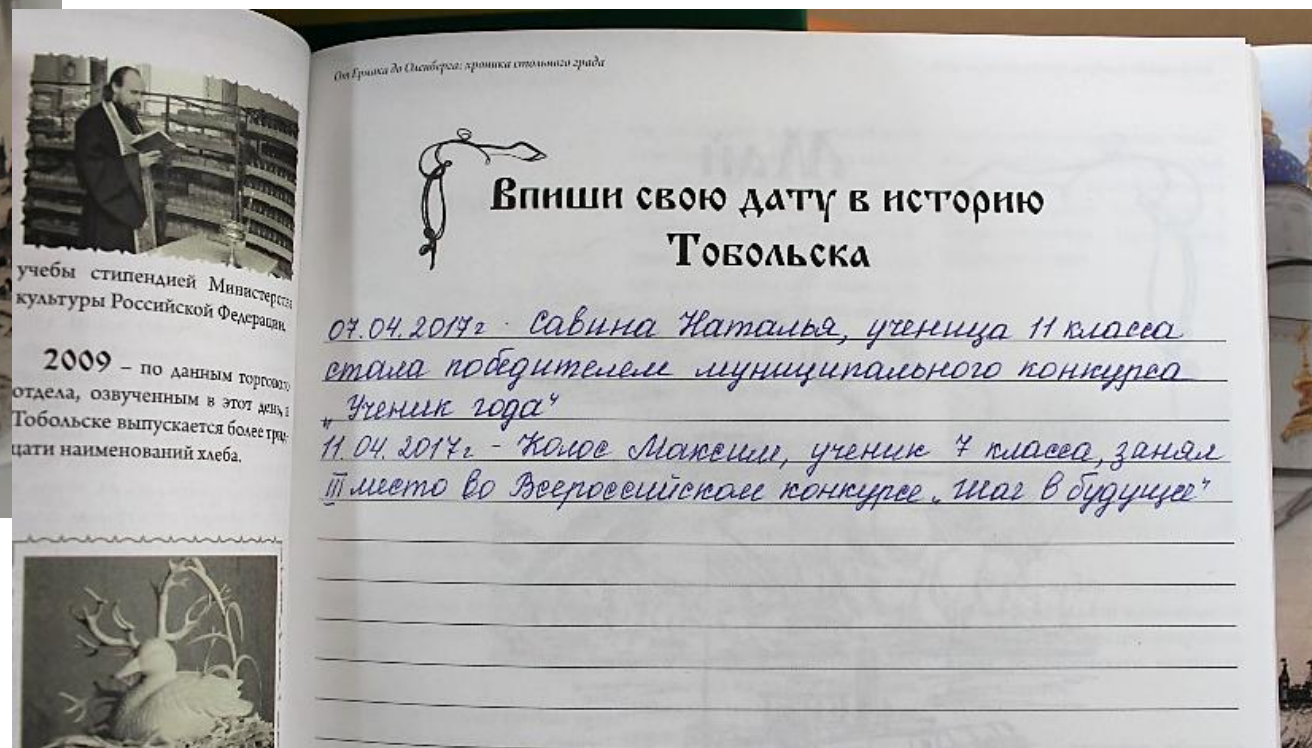 учебы стипендией Министерства
культуры Российской Федерации.
2009 – по данным торгового
отдела, озвученным в этот день, в
Тобольске выпускается более трид-
цати наименований хлеба.
От Ермака до Оленберга: хроника стольного града
Впиши свою дату в историю
Тобольска
07.04.2017г. Савина Наталья, ученица 11 класса
стала победителем муниципального конкурса
„Ученик года“
11.04.2017г. – Колос Максим, ученик 7 класса, занял
III место во Всероссийском конкурсе „Шаг в будущее“